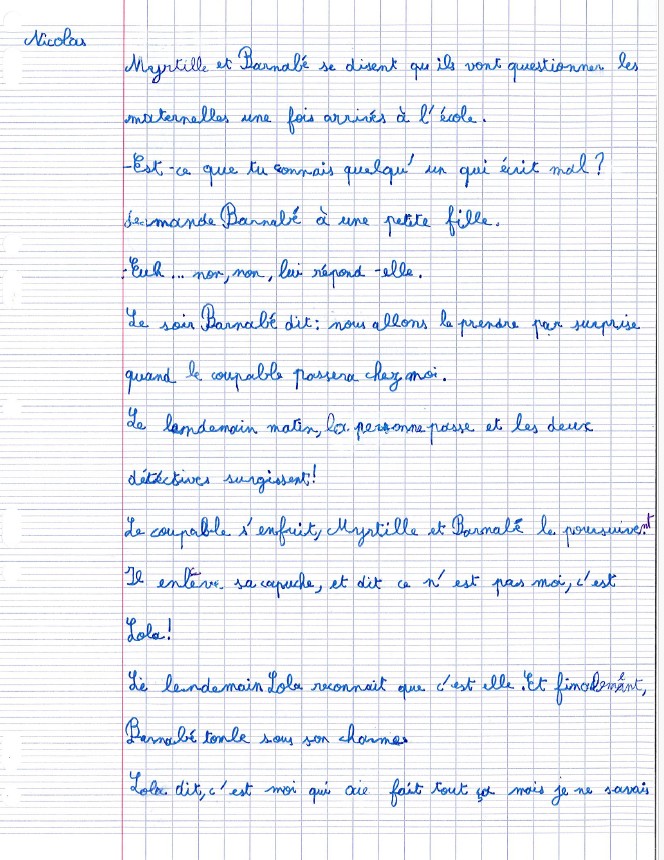 Nicolas
Myrtille et Barnabé se disent qu'ils vont questionner les
maternelles une fois arrivés à l'école.
-Est-ce que tu connais quelqu'un qui écrit mal?
demande Barnabé à une petite fille.
-Euh... non, non, lui répond-elle.
Le soir Barnabé dit: nous allons le prendre par surprise
quand le coupable passera chez moi.
Le lendemain matin, la personne passe et les deux
détéctives surgissent!
Le coupable s'enfuit, Myrtille et Barnabé le poursuivent
Il enlève sa capuche, et dit ce n'est pas moi, c'est
Lola!
Le lendemain Lola reconnait que c'est elle. Et finalement,
Barnabé tonle sous son charme
Lola dit, c'est moi qui aie fait tout ça mais je ne savais